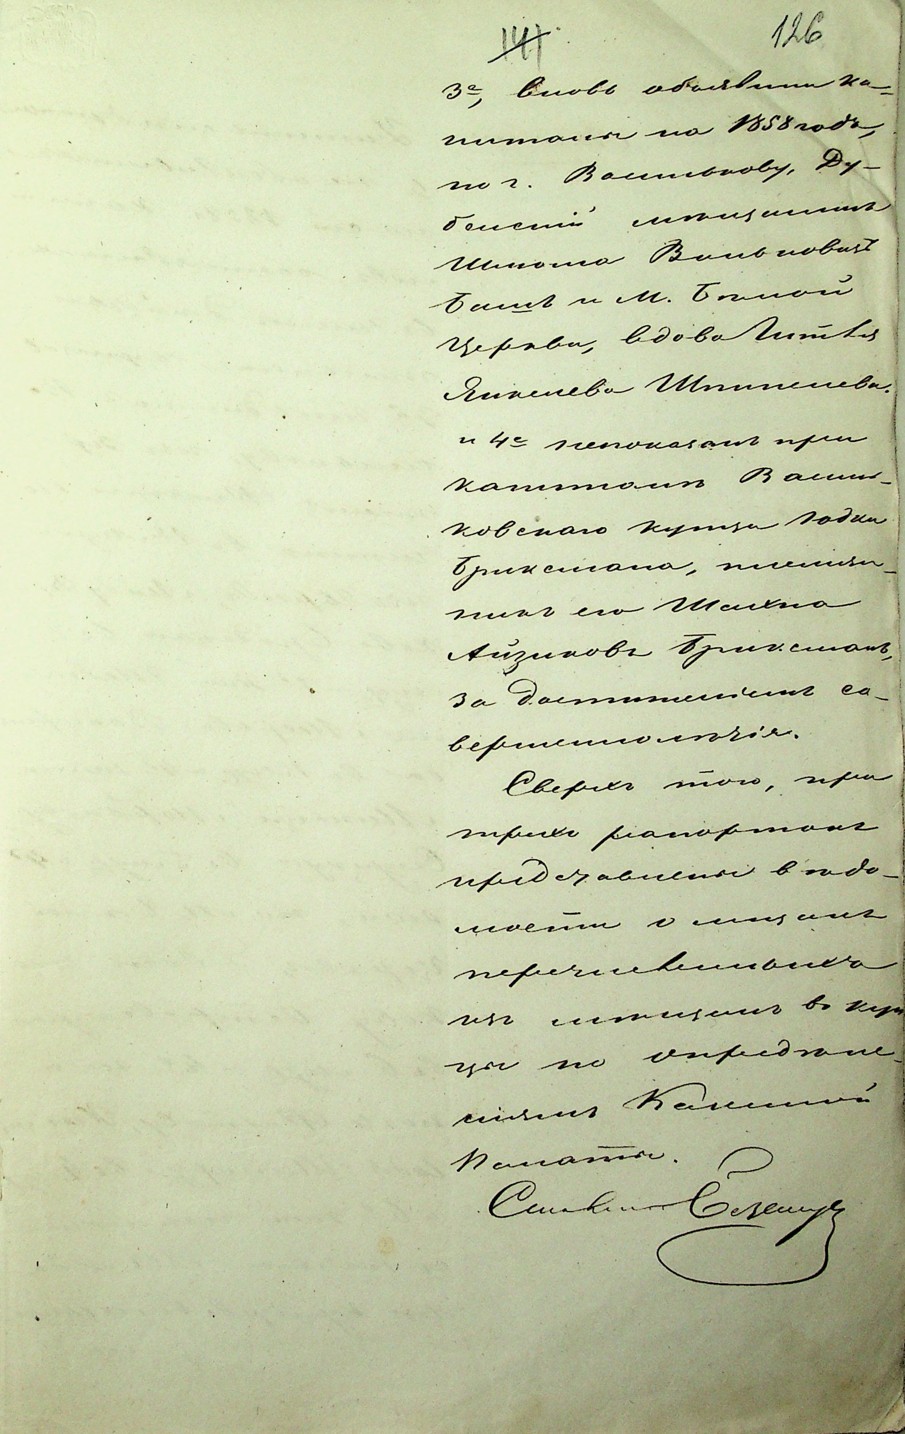 141 126
3е, вновь объявили ка-
питалы на 1858 годъ,
по г. Василькову, Ду-
бенскій мѣщанинъ
Шлома Вольковичъ
Башъ и м. Бѣлой
Церкви, вдова Гитля
Янкелева Шпипелева.
и 4е непоказанъ при
капиталѣ Василь-
ковскаго купца Іодки
Бриксмана, племян-
никъ его Шахно
Айзиковъ Бриксманъ,
за достиженіемъ со-
вершеннолѣтія.
Сверхъ того, при
трехъ рапортахъ
представлены вѣдо-
мости о лицахъ
перечислившихся
изъ мѣщанъ въ куп
цы по опредѣле-
ніямъ Казенной
Палаты.